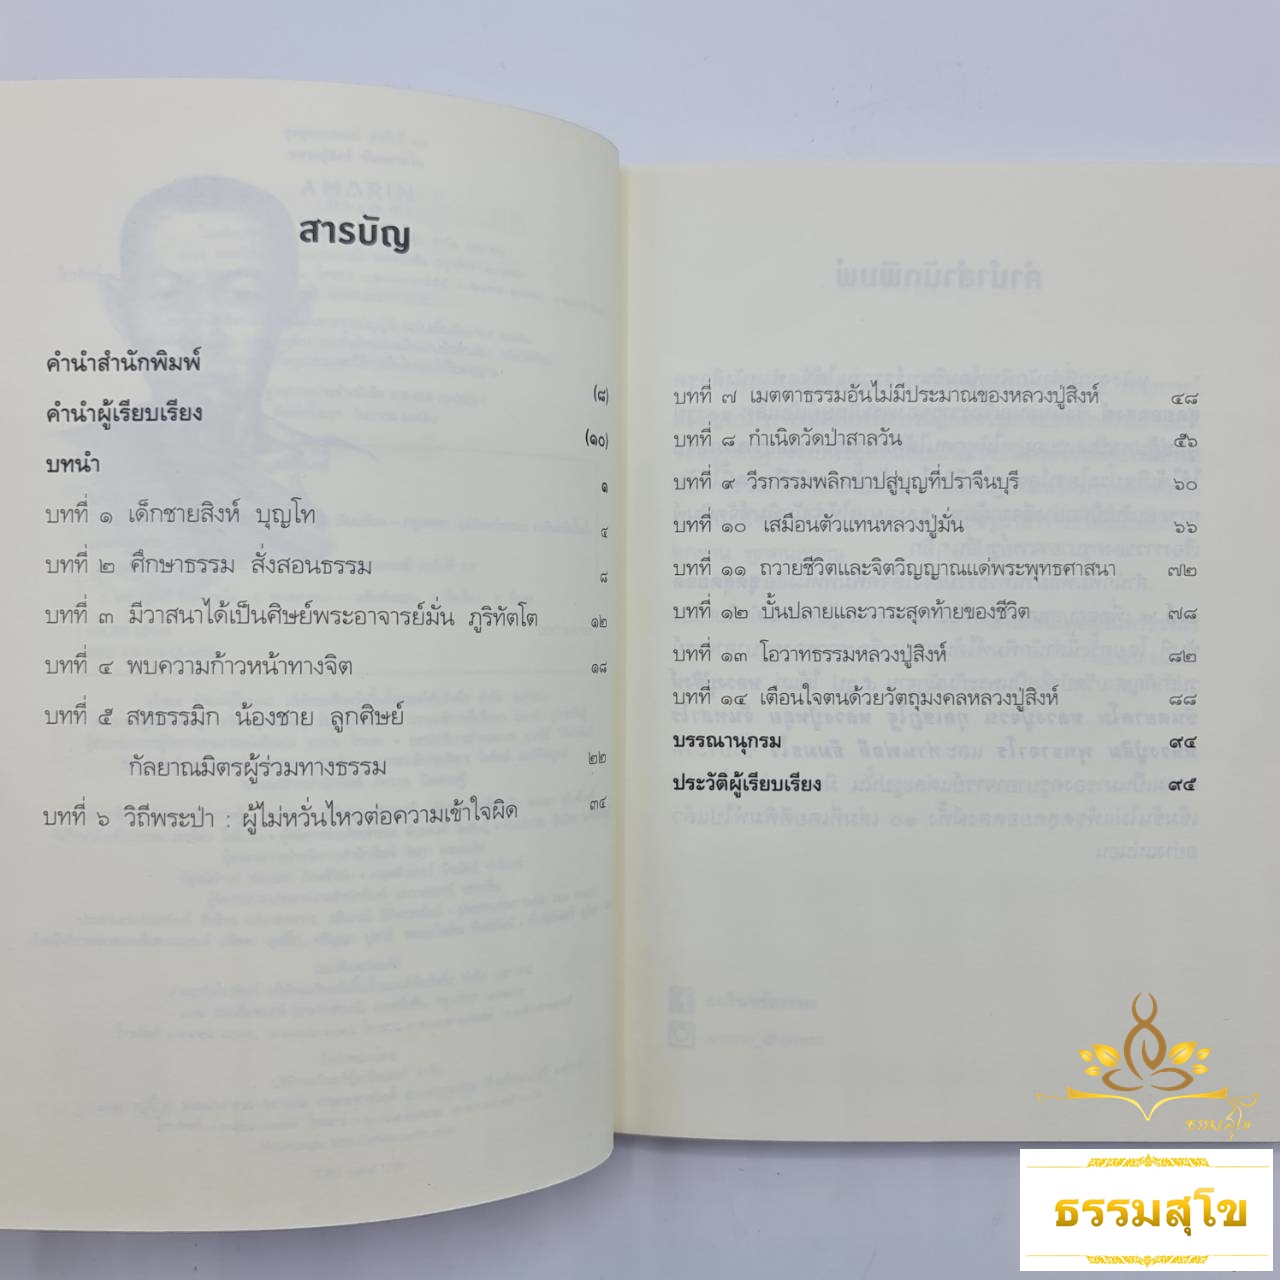 สารบัญ
คำนำสำนักพิมพ์ (๘)
คำนำผู้เรียบเรียง (๑๐)
บทนำ ๑
บทที่ ๑ เด็กชายสิงห์ บุญโท ๔
บทที่ ๒ ศึกษาธรรม สั่งสอนธรรม ๘
บทที่ ๓ มีวาสนาได้เป็นศิษย์พระอาจารย์มั่น ภูริทัตโต ๑๒
บทที่ ๔ พบความก้าวหน้าทางจิต ๑๘
บทที่ ๕ สหธรรมิก น้องชาย ลูกศิษย์
กัลยาณมิตรผู้ร่วมทางธรรม ๒๒
บทที่ ๖ วิถีพระป่า : ผู้ไม่หวั่นไหวต่อความเข้าใจผิด ๓๔
บทที่ ๗ เมตตาธรรมอันไม่มีประมาณของหลวงปู่สิงห์ ๔๘
บทที่ ๘ กำเนิดวัดป่าสาลวัน ๕๖
บทที่ ๙ วีรกรรมพลิกบาปสู่บุญที่ปราจีนบุรี ๖๐
บทที่ ๑๐ เสมือนตัวแทนหลวงปู่มั่น ๖๖
บทที่ ๑๑ ถวายชีวิตและจิตวิญญาณแด่พระพุทธศาสนา ๗๒
บทที่ ๑๒ บั้นปลายและวาระสุดท้ายของชีวิต ๗๘
บทที่ ๑๓ โอวาทธรรมหลวงปู่สิงห์ ๘๒
บทที่ ๑๔ เตือนใจตนด้วยวัตถุมงคลหลวงปู่สิงห์ ๘๘
บรรณานุกรม ๙๔
ประวัติผู้เรียบเรียง ๙๕
ธรรมสุโข
ธรรมสุโข